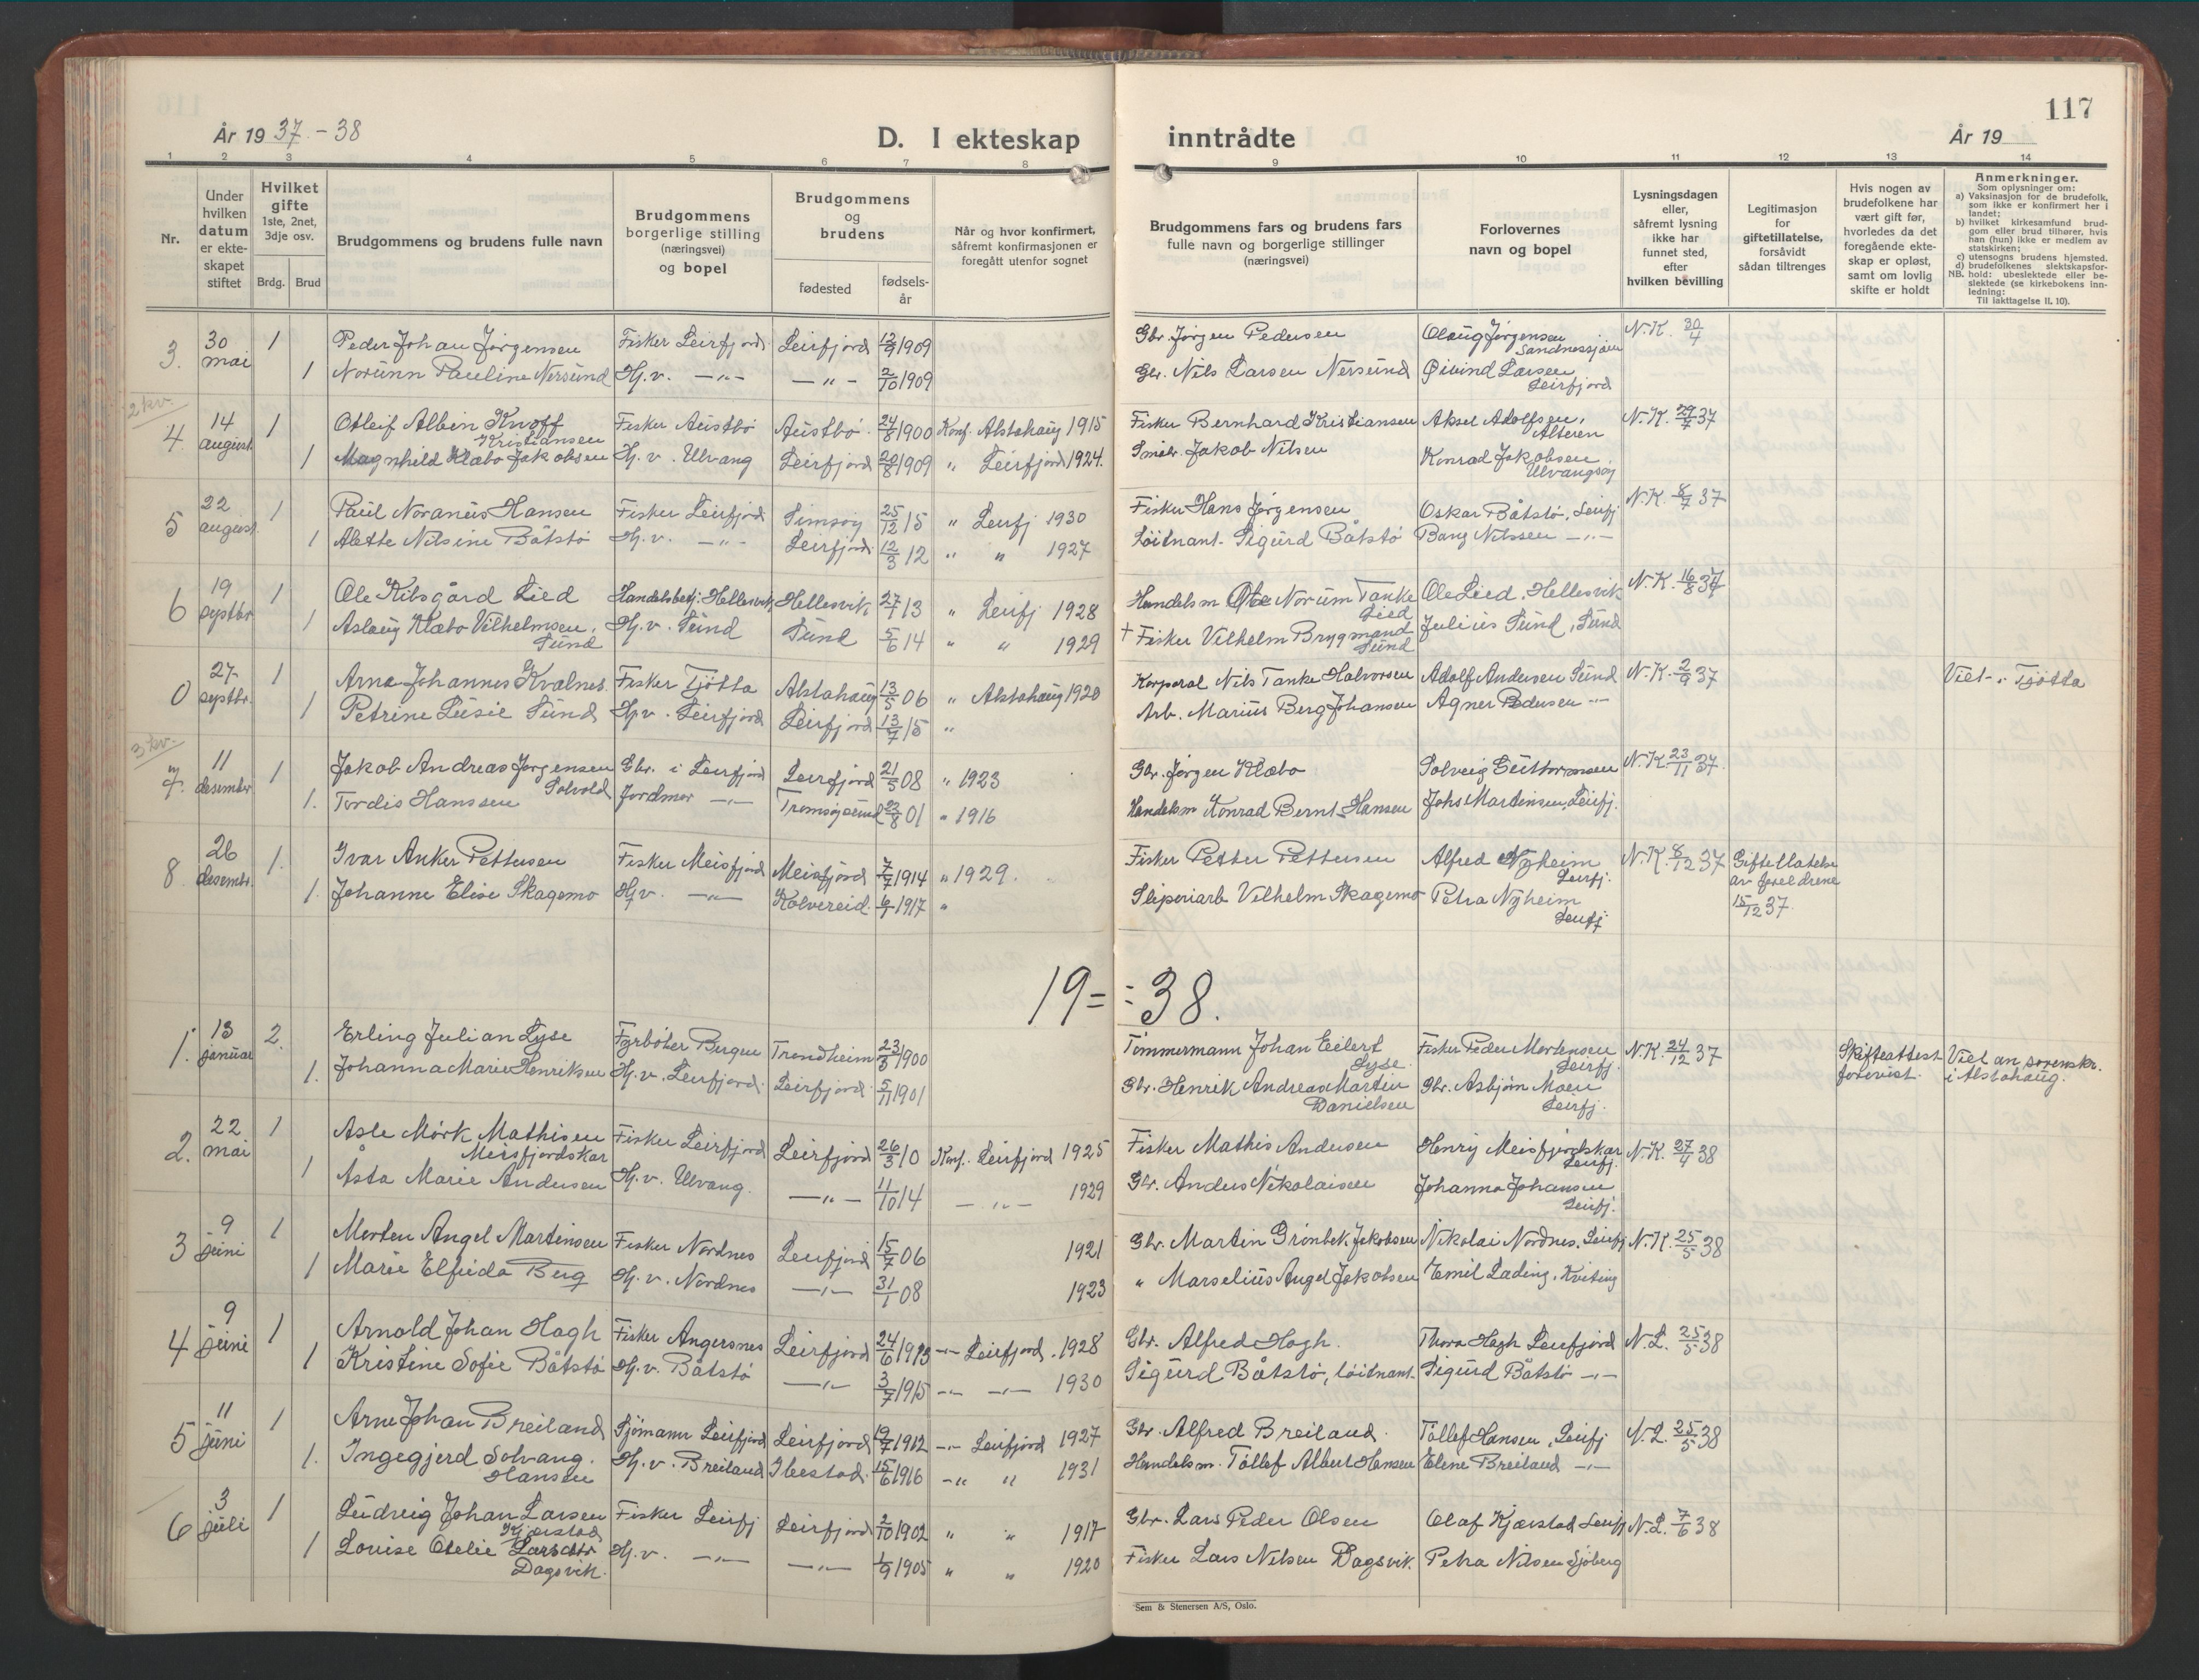 117
År 1937-38
D. I ekteskap inntrådte
År 19
1 2 3 4 5 6 7 8 9 10 11 12 13 14
Nr.
Under hvilken datum er ekteskapet stiftet
Hvilket gifte 1ste, 2net, 3dje osv.
Brdg. Brud
Brudgommens og brudens fulle navn
Brudgommens borgerlige stilling (næringsvei) og bopel
Brudgommens og brudens
fødested
fødsels-år
Når og hvor konfirmert, såfremt konfirmasjonen er foregått utenfor sognet
Brudgommens fars og brudens fars fulle navn og borgerlige stillinger (næringsvei)
Forlovernes navn og bopel
Lysningsdagen eller, såfremt lysning ikke har funnet sted, efter hvilken bevilling
Legitimasjon for giftetillatelse, forsåvidt sådan tiltrenges
Hvis nogen av brudefolkene har vært gift før, hvorledes da det foregående ekteskap er opløst, samt om lovlig skifte er holdt
Anmerkninger.
Som oplysninger om:
a) Vaksinasjon for de brudefolk, som ikke er konfirmert her i landet;
b) hvilket kirkesamfund brudgom eller brud tilhører, hvis han (hun) ikke er medlem av statskirken;
c) utensogns brudens hjemsted.
d) brudefolkenes slektskapsforhold: ubeslektede eller beslektede (se kirkebokens innledning:
NB.
Til iakttagelse II. 10).
3. 30 mai 1 Peder Johan Jørgensen Fisker Leirfjord Leirfjord 12/9 1909 Gbr. Jørgen Pedersen Olaug Jørgensen Sandnessjøen N.K. 30/4
1 Norunn Pauline Nersund Hj.v. —„— —„— 2/10 1909 Gbr. Nils Larsen Nersund Øivind Larsen Leirfjord
2 kv.
4. 14 august 1 Otleif Albin Knoff Kristiansen Fisker Austbø Austbø 24/8 1900 Konf. Alstahaug 1915 Fisker Bernhard Kristiansen Aksel Adolfsen, Alteren N.K. 29/7 37
1 Magnhild Klæbo Jakobsen Hj.v. Ulvang Leirfjord 20/8 1909 „ Leirfjord 1924. Småbr. Jakob Nilsen Konrad Jakobsen, Ulvangsøy
5 22 august 1 Paul Noraneus Hansen Fisker Leirfjord Simsøy 25/12 15 „ Leirfj 1930 Fisker Hans Jørgensen Oskar Båtstø, Leirfj N.K. 8/7 37
1 Alette Nilsine Båtstø Hj.v. —„— Leirfjord 12/3 12 „ „ 1927 Løitnant Sigurd Båtstø Bang Nilssen —„—
6 19 septbr 1 Ole Kibsgård Lied Handelsbetj. Hellesvik Hellesvik 27/7 13 „ Leirfj 1928 Handelsm Ole Norum Tanke Lied Ole Lied, Hellesvik N.K. 16/8 37
1 Aslaug Klæbo Vilhelmsen, Sund Hj.v. Sund Sund 5/6 14 „ „ 1929 † Fisker Vilhelm Brygmand Sund Julius Sund, Sund
0 27 septbr. 1 Arne Johannes Kvalnes Fisker Tjøtta Alstahaug 13/5 06 „ Alstahaug 1920 Korporal Nils Tanke Halvorsen Adolf Andersen Sund N.K. 2/9 37 Viet i Tjøtta
1 Petrine Lusie Sund Hj.v. Leirfjord Leirfjord 13/7 15 „ Arb. Marius Berg Johansen Agner Pedersen —„—
3 kv.
7. 11 desember 1 Jakob Andreas Jørgensen Solvold Gbr. i Leirfjord Leirfjord 21/5 08 „ 1923 Gbr. Jørgen Klæbo Solveig Guttormsen N.K. 23/11 37.
1. Tordis Hanssen Jordmor —„— Tromsøysund 22/8 01 „ 1916 Handelsm Konrad Bernt Hansen Johs Martinsen, Leirfj.
8 26 desembr. 1. Ivar Anker Pettersen Fisker Meisfjord Meisfjord 7/7 1914 „ 1929. Fisker Petter Pettersen Alfred Nyheim Leirfj. N.K. 8/12 37 Giftetillatelse av foreldrene 15/12 37.
1. Johanne Elise Skagemo Hj.v. —„— Kolvereid 6/1 1917 „ Sliperiarb Vilhelm Skagemo Petra Nyheim Leirfj
19=÷38.
1. 13 januar 2. Erling Julian Lyse Fyrbøter Bergen Trondheim 23/3 1900 Tømmermann Johan Eilert Lyse Fisker Peder Mortensen Leirfj. N.K. 24/12 37 Skifteattest forevist. Viet av sorenskr. i Alstahaug.
1. Johanna Marie Henriksen Hj.v. Leirfjord. Leirfjord 5/11 1901 Gbr. Henrik Andreas Martin Danielsen Gbr. Asbjørn Moen Leirfj.
2. 22 mai 1 Asle Mørk Mathisen Meisfjordskar Fisker Leirfjord Leirfjord 26/3 10 Konf. Leirfjord 1925 Fisker Mathis Andersen Henry Meisfjordskar Leirfj. N.K. 27/4 38
1 Åsta Marie Andersen Hj.v. Ulvang. —„— 11/10 14 —„— 1929 Gbr. Anders Nikolaisen Johanna Johansen Leirfj.
3 9 juni 1 Morten Angel Martinsen Fisker Nordnes Leirfjord 15/7 06 1921 Gbr. Martin Grønbek Jakobsen Nikolai Nordnes, Leirfj N.K. 25/5 38
1 Marie Elfrida Berg Hj.v. Nordnes —„— 31/1 08 1923 „ Marselius Angel Jakobsen Emil Lading, Kviting
4 9 juni 1 Arnold Johan Hagh Fisker Angersnes Leirfjord 24/6 1913 —„— Leirfjord. 1928 Gbr. Alfred Hagh. Thora Hagh Leirfjord N.L. 25/5 38
1 Kristine Sofie Båtstø Hj.v. Båtstø —„— 3/7 1915 —„— —„— 1930 Sigurd Båtstø, løitnant. Sigurd Båtstø —„—
5 11 juni 1 Arne Johan Breiland Sjømann Leirfjord Leirfjord 19/7 1912 —„— Leirfjord 1927 Gbr. Alfred Breiland. Tollef Hansen, Leirfj N.L. 25/5 38
1. Ingegjerd Solvang Hansen Hj.v. Breiland Ibestad. 15/6 1916 —„ „ 1931 Handelsm. Tollef Albert Hansen Elene Breiland —„—
6 3 juli 1 Ludvig Johan Larsen Kjærstad Fisker Leirfj Leirfjord 2/10 1902 „ „ 1917 Gbr. Lars Peder Olsen Olaf Kjærstad Leirfj N.L. 7/6 38
1 Louise Otelie Larsdtr Dagsvik. Hj.v. —„— —„— 1/9 1905 „ „ 1920 Fisker Lars Nelsen Dagsvik. Petra Nilsen Sjøberg
Sem & Stenersen A/S, Oslo.